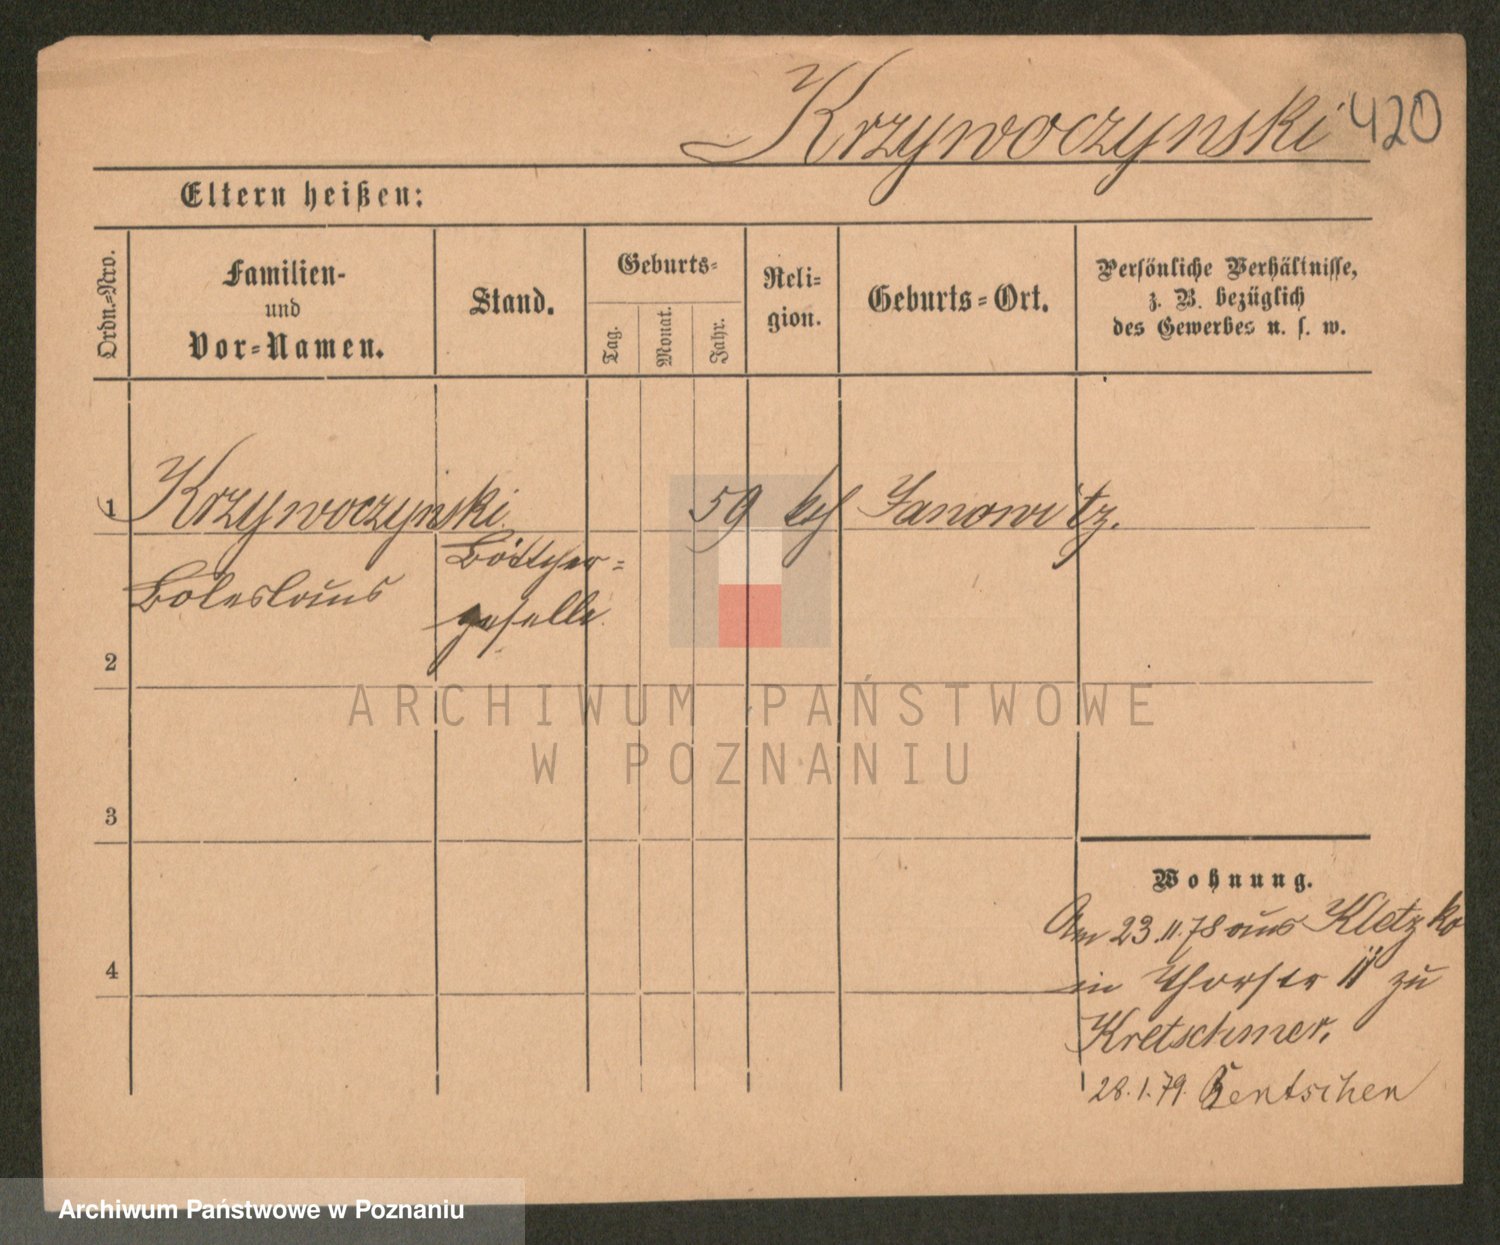 Krzywoczynski 420
Eltern heißen:
Ordn.=Nro.
Familien-
und
Vor=Namen.
Stand.
Geburts=
Tag.
Monat.
Jahr.
Reli=
gion.
Geburts=Ort.
Persönliche Verhältnisse,
z. B. bezüglich
des Gewerbes u. s. w.
1 Krzywoczynski 59 kth Janowitz.
Boleslaus
Böttcher=
geselle.
2
ARCHIWUM PAŃSTWOWE
W POZNANIU
3
Wohnung.
Am 23.11.78 aus Kletzko
4
in Thorstr 11 zu
Kretschmer.
28.1.79. Bentschen
Archiwum Państwowe w Poznaniu